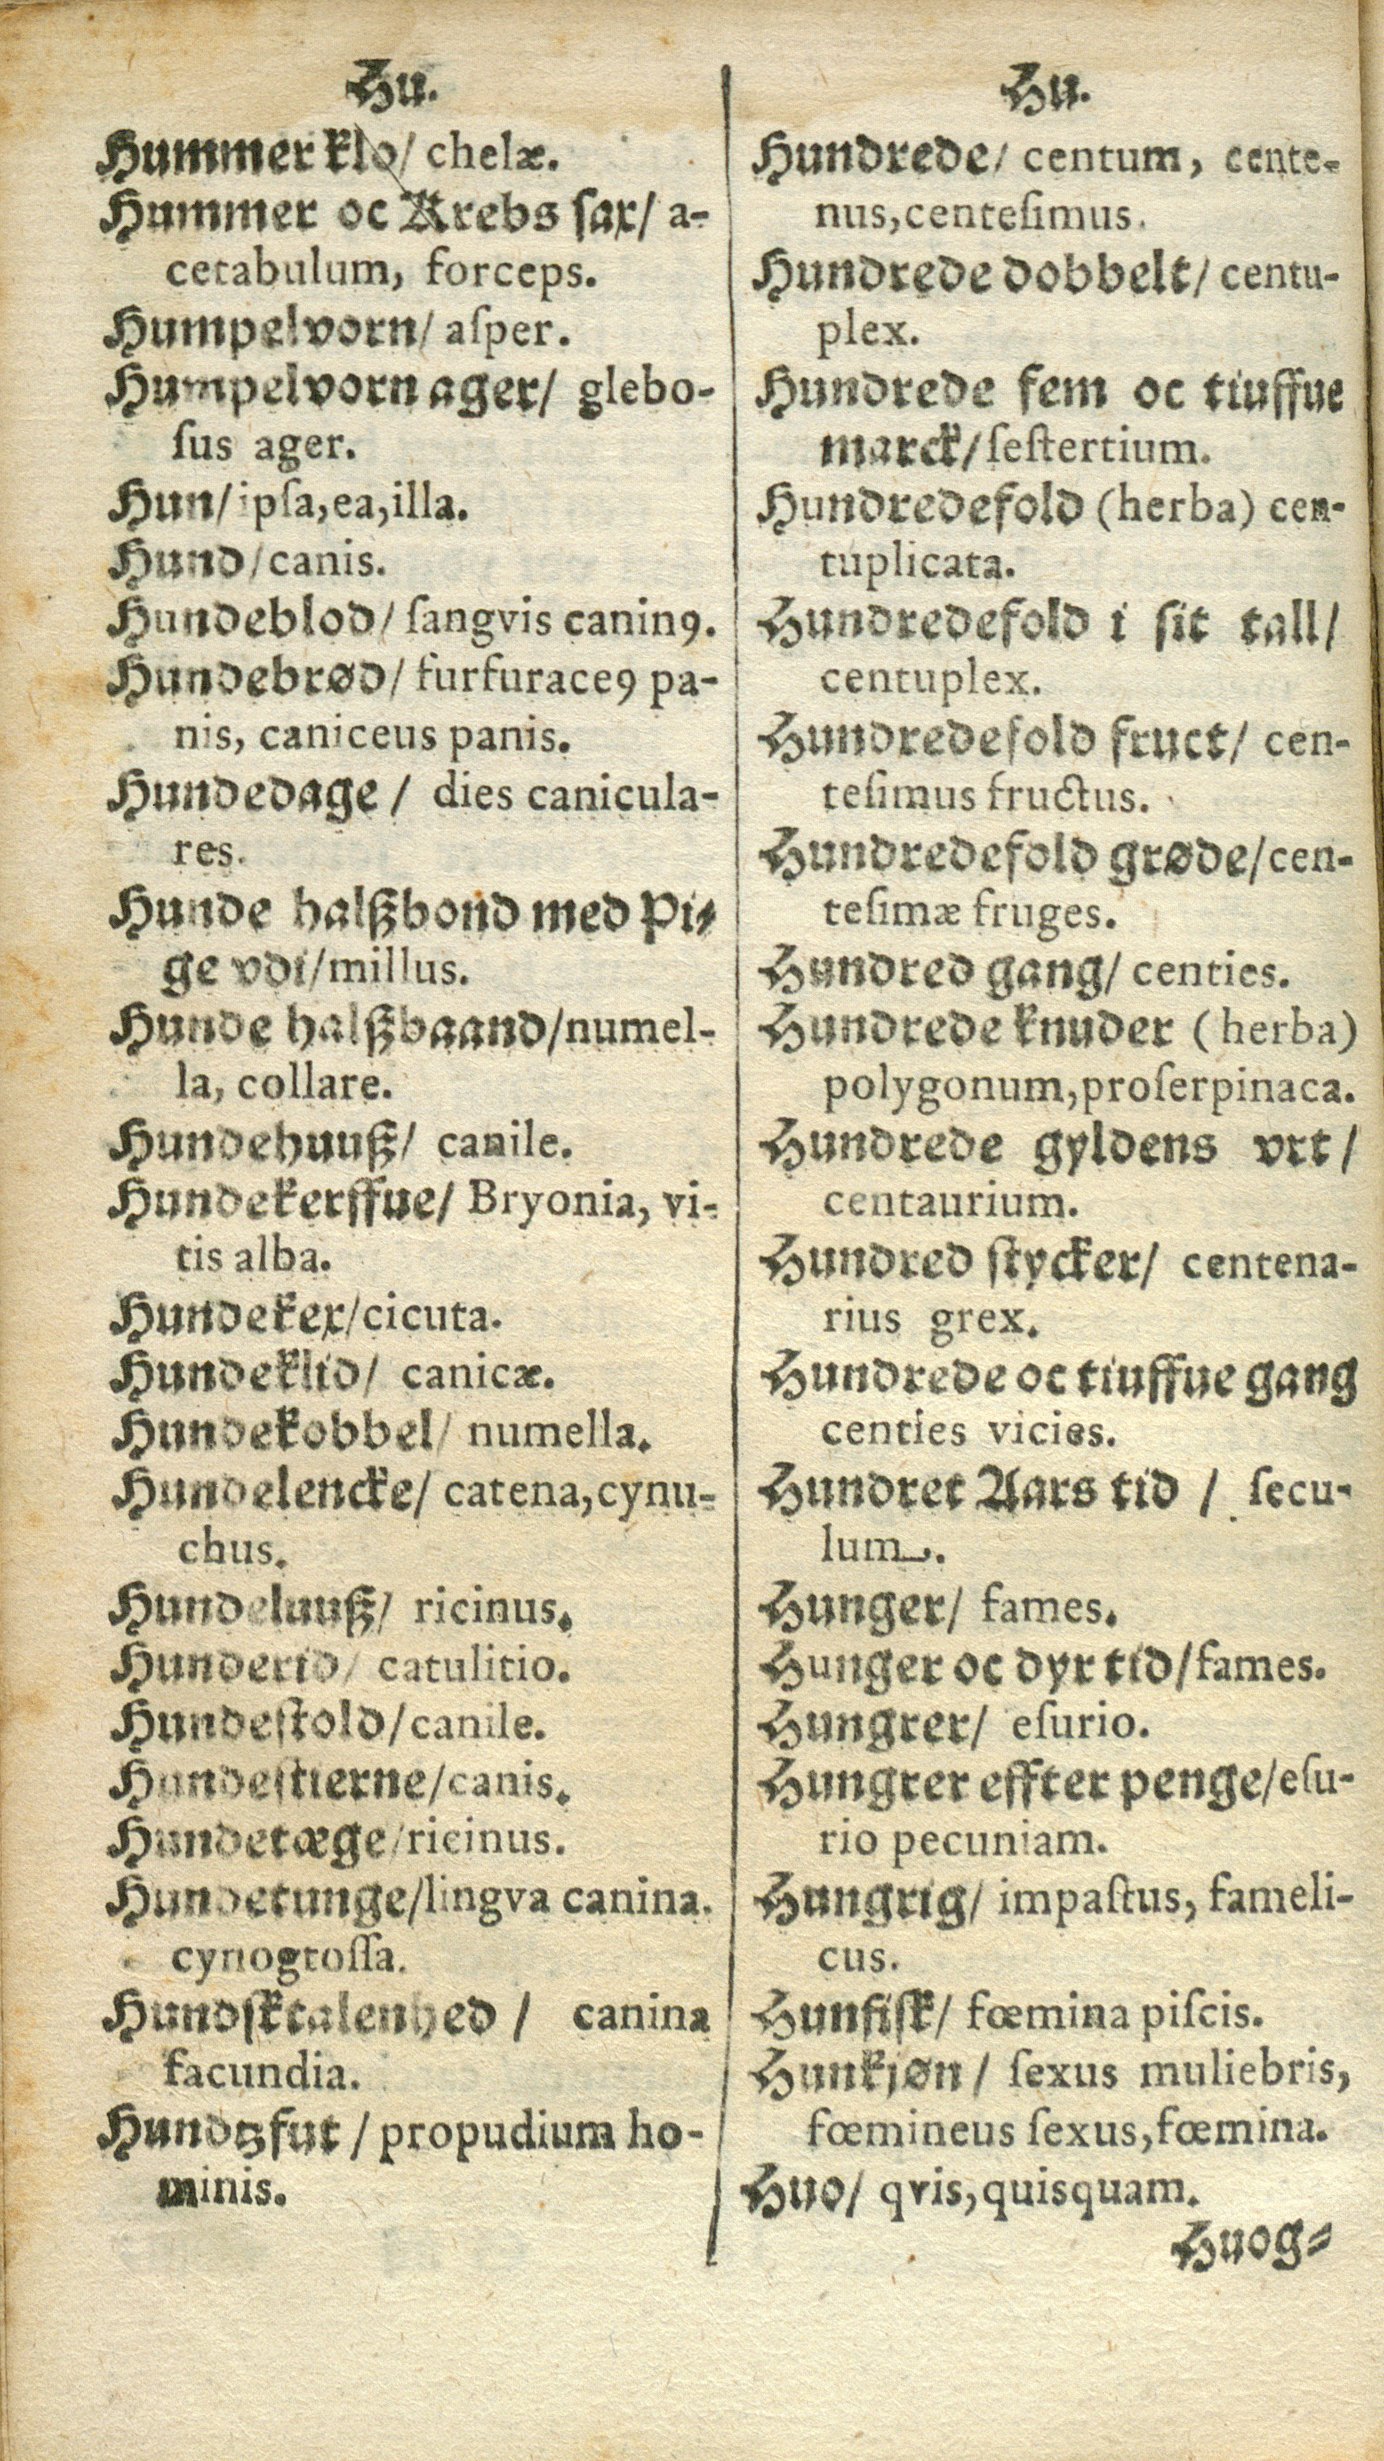 Hu.
Hummer klo/ chelæ.
Hummer oc Krebs sax/ a-
cetabulum, forceps.
Humpelvorn/ aſper.
Humpelvorn ager/ glebo-
ſus ager.
Hun/ ipſa,ea,illa.
Hund/canis.
Hundeblod/ ſangvis canin9.
Hundebrød/ furfurace9 pa-
nis, caniceus panis.
Hundedage / dies canicula-
res.
Hunde halßbond med Pi-
ge vdi/millus.
Hunde halßbaand/numel-
la, collare.
Hundehuuß/ canile.
Hundekerffue/ Bryonia, vi-
tis alba.
Hundekex/cicuta.
Hundeklid/ canicæ.
Hundekobbel/ numella.
Hundelencke/ catena,cynu-
chus.
Hundeluuß/ ricinus.
Hunderid/ catulitio.
Hundeſtold/canile.
Hundeſtierne/canis.
Hundetæge/ricinus.
Hundetunge/lingva canina.
cynogtoſſa.
Hundſktalenhed / canina
facundia.
Hundtzfut / propudium ho-
minis.
Hu.
Hundrede/ centum, cente-
nus,centeſimus.
Hundrede dobbelt/ centu-
plex.
Hundrede fem oc tiuffue
marck/ſeſtertium.
Hundredefold (herba) cen-
tuplicata.
Hundredefold i ſit tall/
centuplex.
Hundredefold fruct/ cen-
teſimus fructus.
Hundredefold grøde/cen-
teſimæ fruges.
Hundred gang/ centies.
Hundrede knuder (herba)
polygonum,proſerpinaca.
Hundrede gyldens vrt/
centaurium.
Hundred ſtycker/ centena-
rius grex.
Hundrede oc tiuffue gang
centies vicies.
Hundret Aars tid / ſecu-
lum.
Hunger/ fames.
Hunger oc dyr tid/fames.
Hungrer/ eſurio.
Hungrer effter penge/eſu-
rio pecuniam.
Hungrig/ impaſtus, fameli-
cus.
Hunfiſk/ fœmina piſcis.
Hunkjøn/ ſexus muliebris,
fœmineus ſexus,fœmina.
Huo/ qvis,quisquam.
Huog-